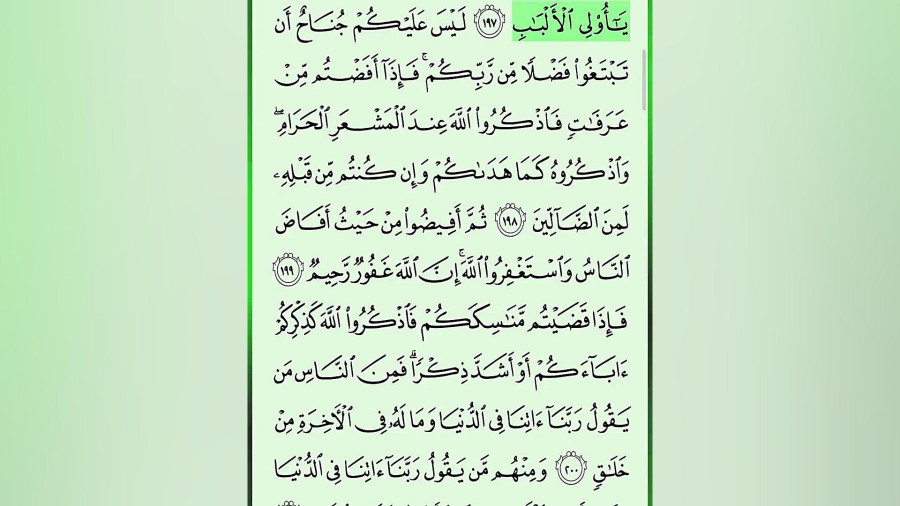 يَـٰٓأُو۟لِى ٱلْأَلْبَـٰبِ ١٩٧ لَيْسَ عَلَيْكُمْ جُنَاحٌ أَن
تَبْتَغُوا۟ فَضْلًا مِّن رَّبِّكُمْ ۚ فَإِذَآ أَفَضْتُم مِّنْ
عَرَفَـٰتٍ فَٱذْكُرُوا۟ ٱللَّهَ عِندَ ٱلْمَشْعَرِ ٱلْحَرَامِ ۖ
وَٱذْكُرُوهُ كَمَا هَدَىٰكُمْ وَإِن كُنتُم مِّن قَبْلِهِۦ
لَمِنَ ٱلضَّآلِّينَ ١٩٨ ثُمَّ أَفِيضُوا۟ مِنْ حَيْثُ أَفَاضَ
ٱلنَّاسُ وَٱسْتَغْفِرُوا۟ ٱللَّهَ ۚ إِنَّ ٱللَّهَ غَفُورٌ رَّحِيمٌ ١٩٩
فَإِذَا قَضَيْتُم مَّنَـٰسِكَكُمْ فَٱذْكُرُوا۟ ٱللَّهَ كَذِكْرِكُمْ
ءَابَآءَكُمْ أَوْ أَشَدَّ ذِكْرًا ۗ فَمِنَ ٱلنَّاسِ مَن
يَقُولُ رَبَّنَآ ءَاتِنَا فِى ٱلدُّنْيَا وَمَا لَهُۥ فِى ٱلْـَٔاخِرَةِ مِنْ
خَلَـٰقٍ ٢٠٠ وَمِنْهُم مَّن يَقُولُ رَبَّنَآ ءَاتِنَا فِى ٱلدُّنْيَا